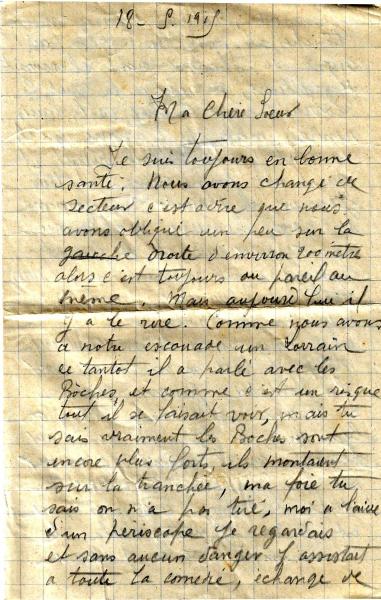 18 - 5. 1915
Ma Chère Soeur
Je suis toujours en bonne
santé. Nous avons changé de
secteur c'est a dire que nous
avons obliqué un peu sur la
gauche droite d'environ 200 mètre
alors c'est toujours au pareil au
même. Mais aujourd'hui il
y a le rire. Comme nous avons
a notre escouade un Lorrain
ce tantot il a parlé avec les
Boches, et comme c'est un risque
tout il se faisait voir, mais tu
sais vraiment les Boches sont
encore plus forts, ils montaient
sur la tranchée, ma foie tu
sais on n'a pas tiré, moi a l'aide
d'un periscope je regardais
et sans aucun danger j'assistait
a toute la comedie, échange de